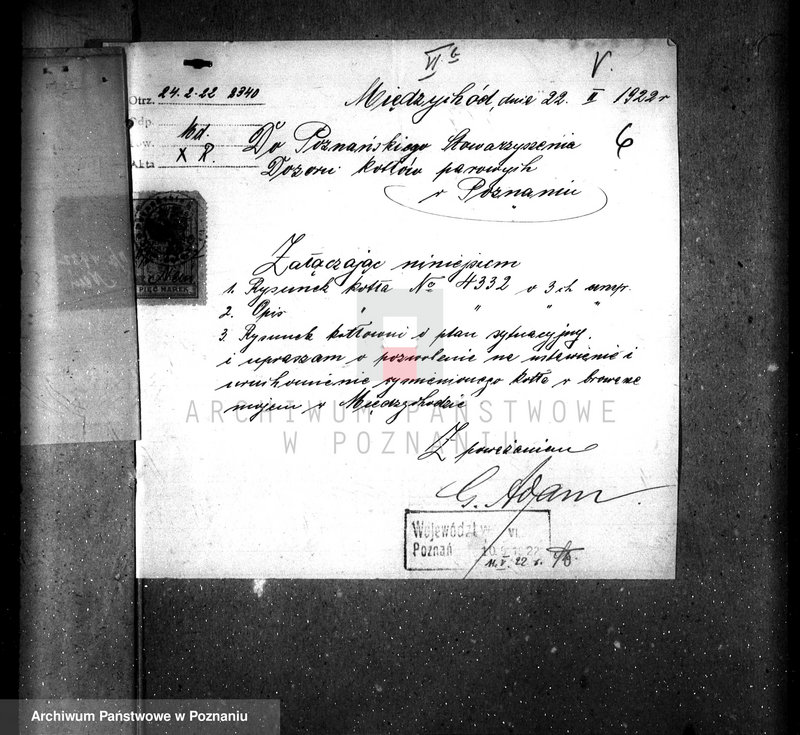 VI b
V.
Otrz. 24.2.22 2340
Odp.
Now. Md.
Akta X R.
Międzychód, dnia 22. II 1922 r
6
Do Poznańskiego Stowarzyszenia
Dozoru kotłów parowych
w Poznaniu
PIĘĆ MAREK
Załączając niniejszem
1. Rysunek kotła No 4332 w 3-ch
2. Opis " " " "
3. Rysunek kotłowni i plan sytuacyjny
i upraszam o pozwolenie na ustawienie i
uruchomienie wymienionego kotła w browarze
mojem w Międzychodzie
Z poważaniem
G. Adam
Województwo
Poznań 1922
11. V. 22
ARCHIWUM PAŃSTWOWE
W POZNANIU
Archiwum Państwowe w Poznaniu